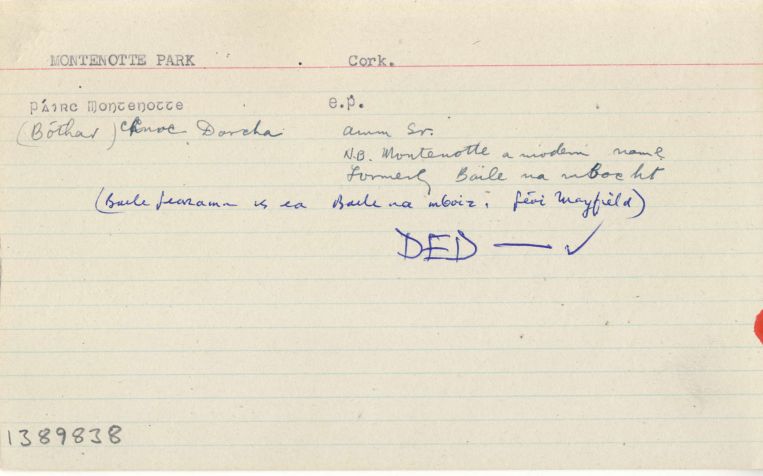 MONTENOTTE PARK . Cork.
páirc Montenotte e.p.
(Bóthar) Chnoc Dorcha ainm Sr.
N.B. Montenotte a modern name
formerly Baile na mBocht
(Baile fearainn is ea Baile na mBocht: fé Mayfield)
DED — ✓
1389838